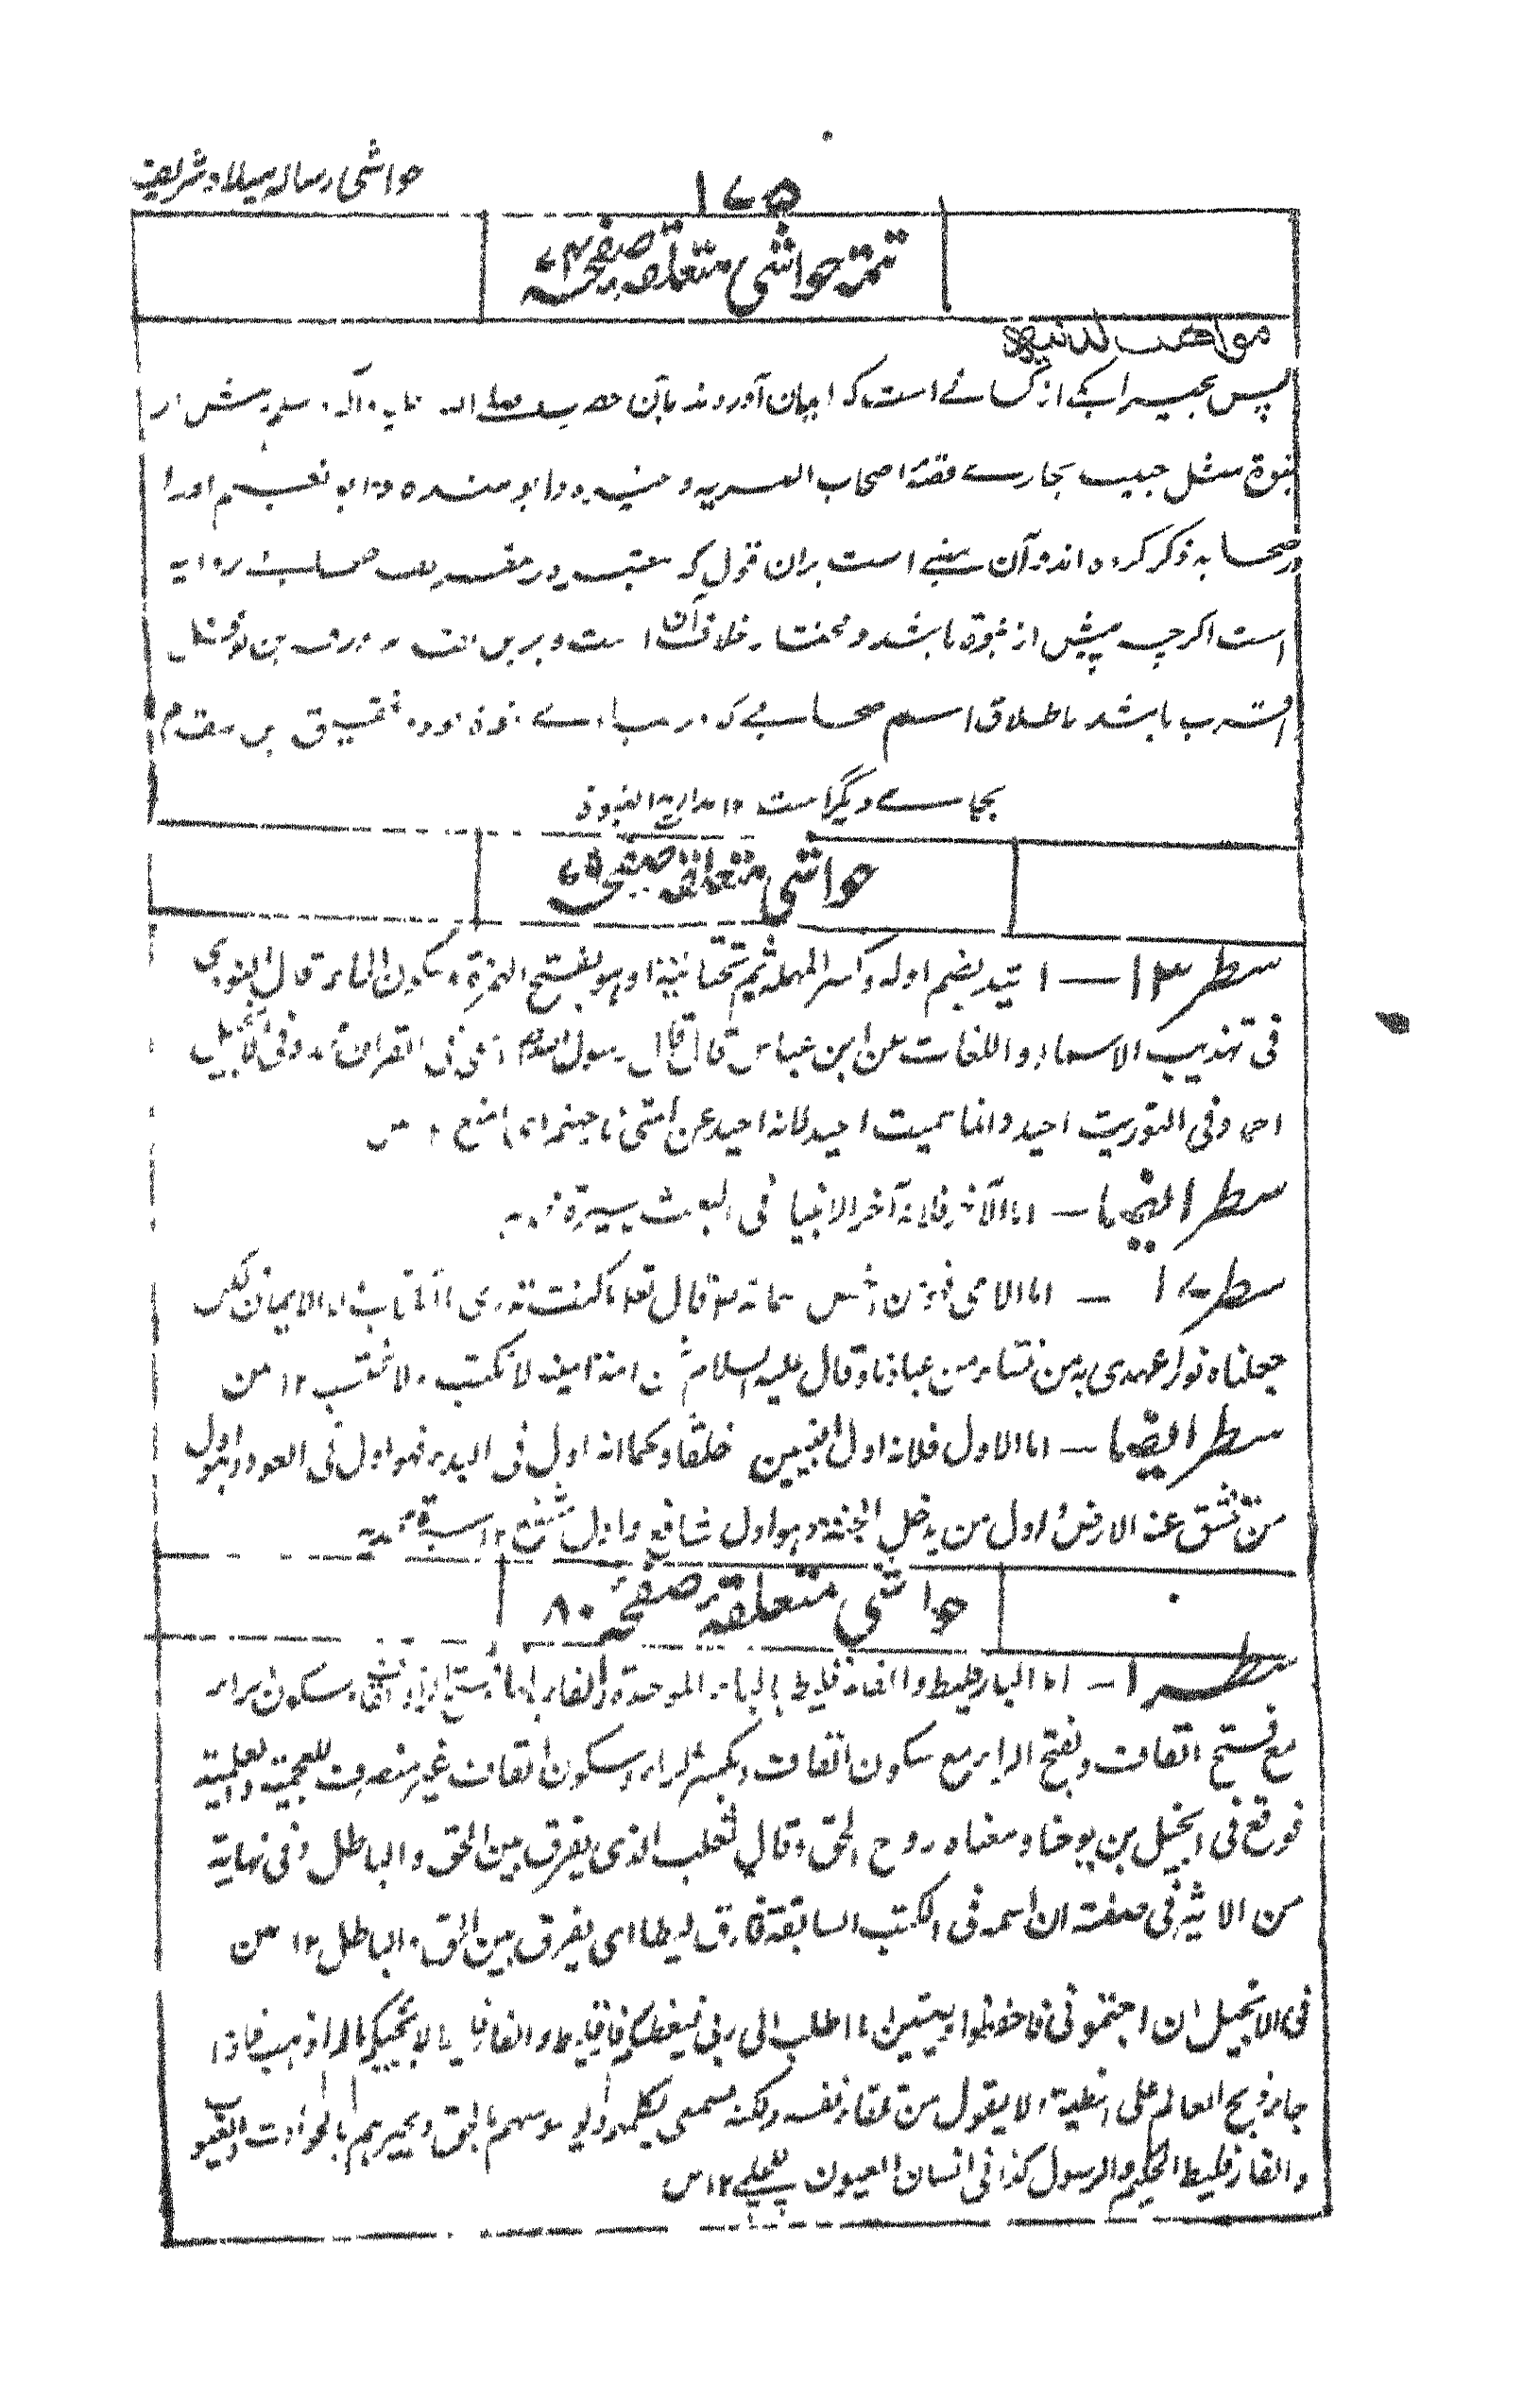 حواشی رسالہ میلاد شریف
۱۷۵
تتمۃ حواشی متعلقہ صفحہ ۷۴
مواهب لدنیه
پس بحیرا یکے از کسانے است کہ ایمان آوردند بآن حضرت صلے اللہ علیہ وآلہ وسلم پیش از
نبوۃ مثل حبیب نجارے وقصۂ اصحاب القریہ وغیرہ وابو مندہ وابو نعیم اورا
درصحابہ ذکر کردہ اند وآن مبنی است بران قول کہ معتبر در صحابیت رویت
است اگرچہ پیش از نبوۃ باشد ومختار خلاف آن است وبرین ورقہ بن نوفل
اقرب باشد باطلاق اسم صحابے کہ در مبادے نبوۃ بود وتحقیق این مقام
بجاے دیگر است مدارج النبوۃ
حواشی متعلقہ صفحہ ۷۵
سطر ۱۳ — احید بضم اولہ وکسر المہملہ ثم تحتانیۃ او ہو بفتح الہمزۃ وسکون الحاء قال النووی
فی تہذیب الاسماء واللغات عن ابن عباس قال قال رسول اسمی فی القرآن محمد وفی الانجیل
احمد وفی التوریت احید وانما سمیت احید لانہ احید عن امتی نار جہنم ای امنع ۱۲ ص
سطر ایضا — اما الآخر فلانہ آخر الانبیا فی البعث سیرۃ
سطر ۱۷ — اما الامی قال تعالی ما کنت تدری ما الکتاب ولا الایمان ولکن
جعلناہ نورا نہدی بہ من نشاء من عبادنا وقال علیہ السلام امۃ امیۃ لا نکتب ولا نحتسب ۱۲ من
سطر ایضا — اما الاول فلانہ اول النبیین خلقا وکما انہ اول فی البدء فہو اول فی العود وہو اول
من تنشق عنہ الارض واول من یدخل الجنۃ وہو اول شافع واول مشفع ۱۲ سیرۃ
حواشی متعلقہ صفحہ ۸۰
سطر ۱ — اما البارقلیط والفارقلیط بالباء الموحدۃ والفاء وسکون الراء
مع فتح القاف وبفتح الراء مع سکون القاف وبکسر الراء وسکون القاف غیر منصرف للعجمۃ والعلمیۃ
فوقع فی انجیل بن یوحنا ومعناہ روح الحق وقال ثعلب الذی یفرق بین الحق والباطل وفی نہایۃ
من الاثیر فی صفتہ ان اسمہ فی الکتب السابقۃ فارق لیطا ای یفرق بین الحق والباطل ۱۲ من
فی الانجیل ان احببتمونی فاحفظوا وصیتی انا اطلب الی ربی فیعطیکم فارقلیط والفارقلیط لا یجیئکم مالم اذہب فاذا
جاء وبخ العالم علی الخطیۃ ولا یقول من تلقاء نفسہ ولکنہ مایسمع یکلمہ ویسوسہم بالحق ویخبرہم بالحوادث والغیوب
والفارقلیط الحکیم والرسول کذا فی انسان العیون للحلبی ۱۲ ص